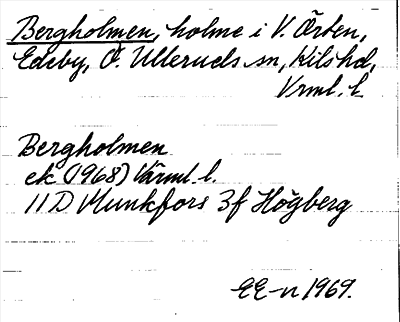 Bergholmen, holme i V. Örten,
Edeby, Ö. Ulleruds sn, Kils hd,
Vrml. l.
Bergholmen
ek (1968) Värml. l.
11D Munkfors 3f Högberg
EE-n 1969.